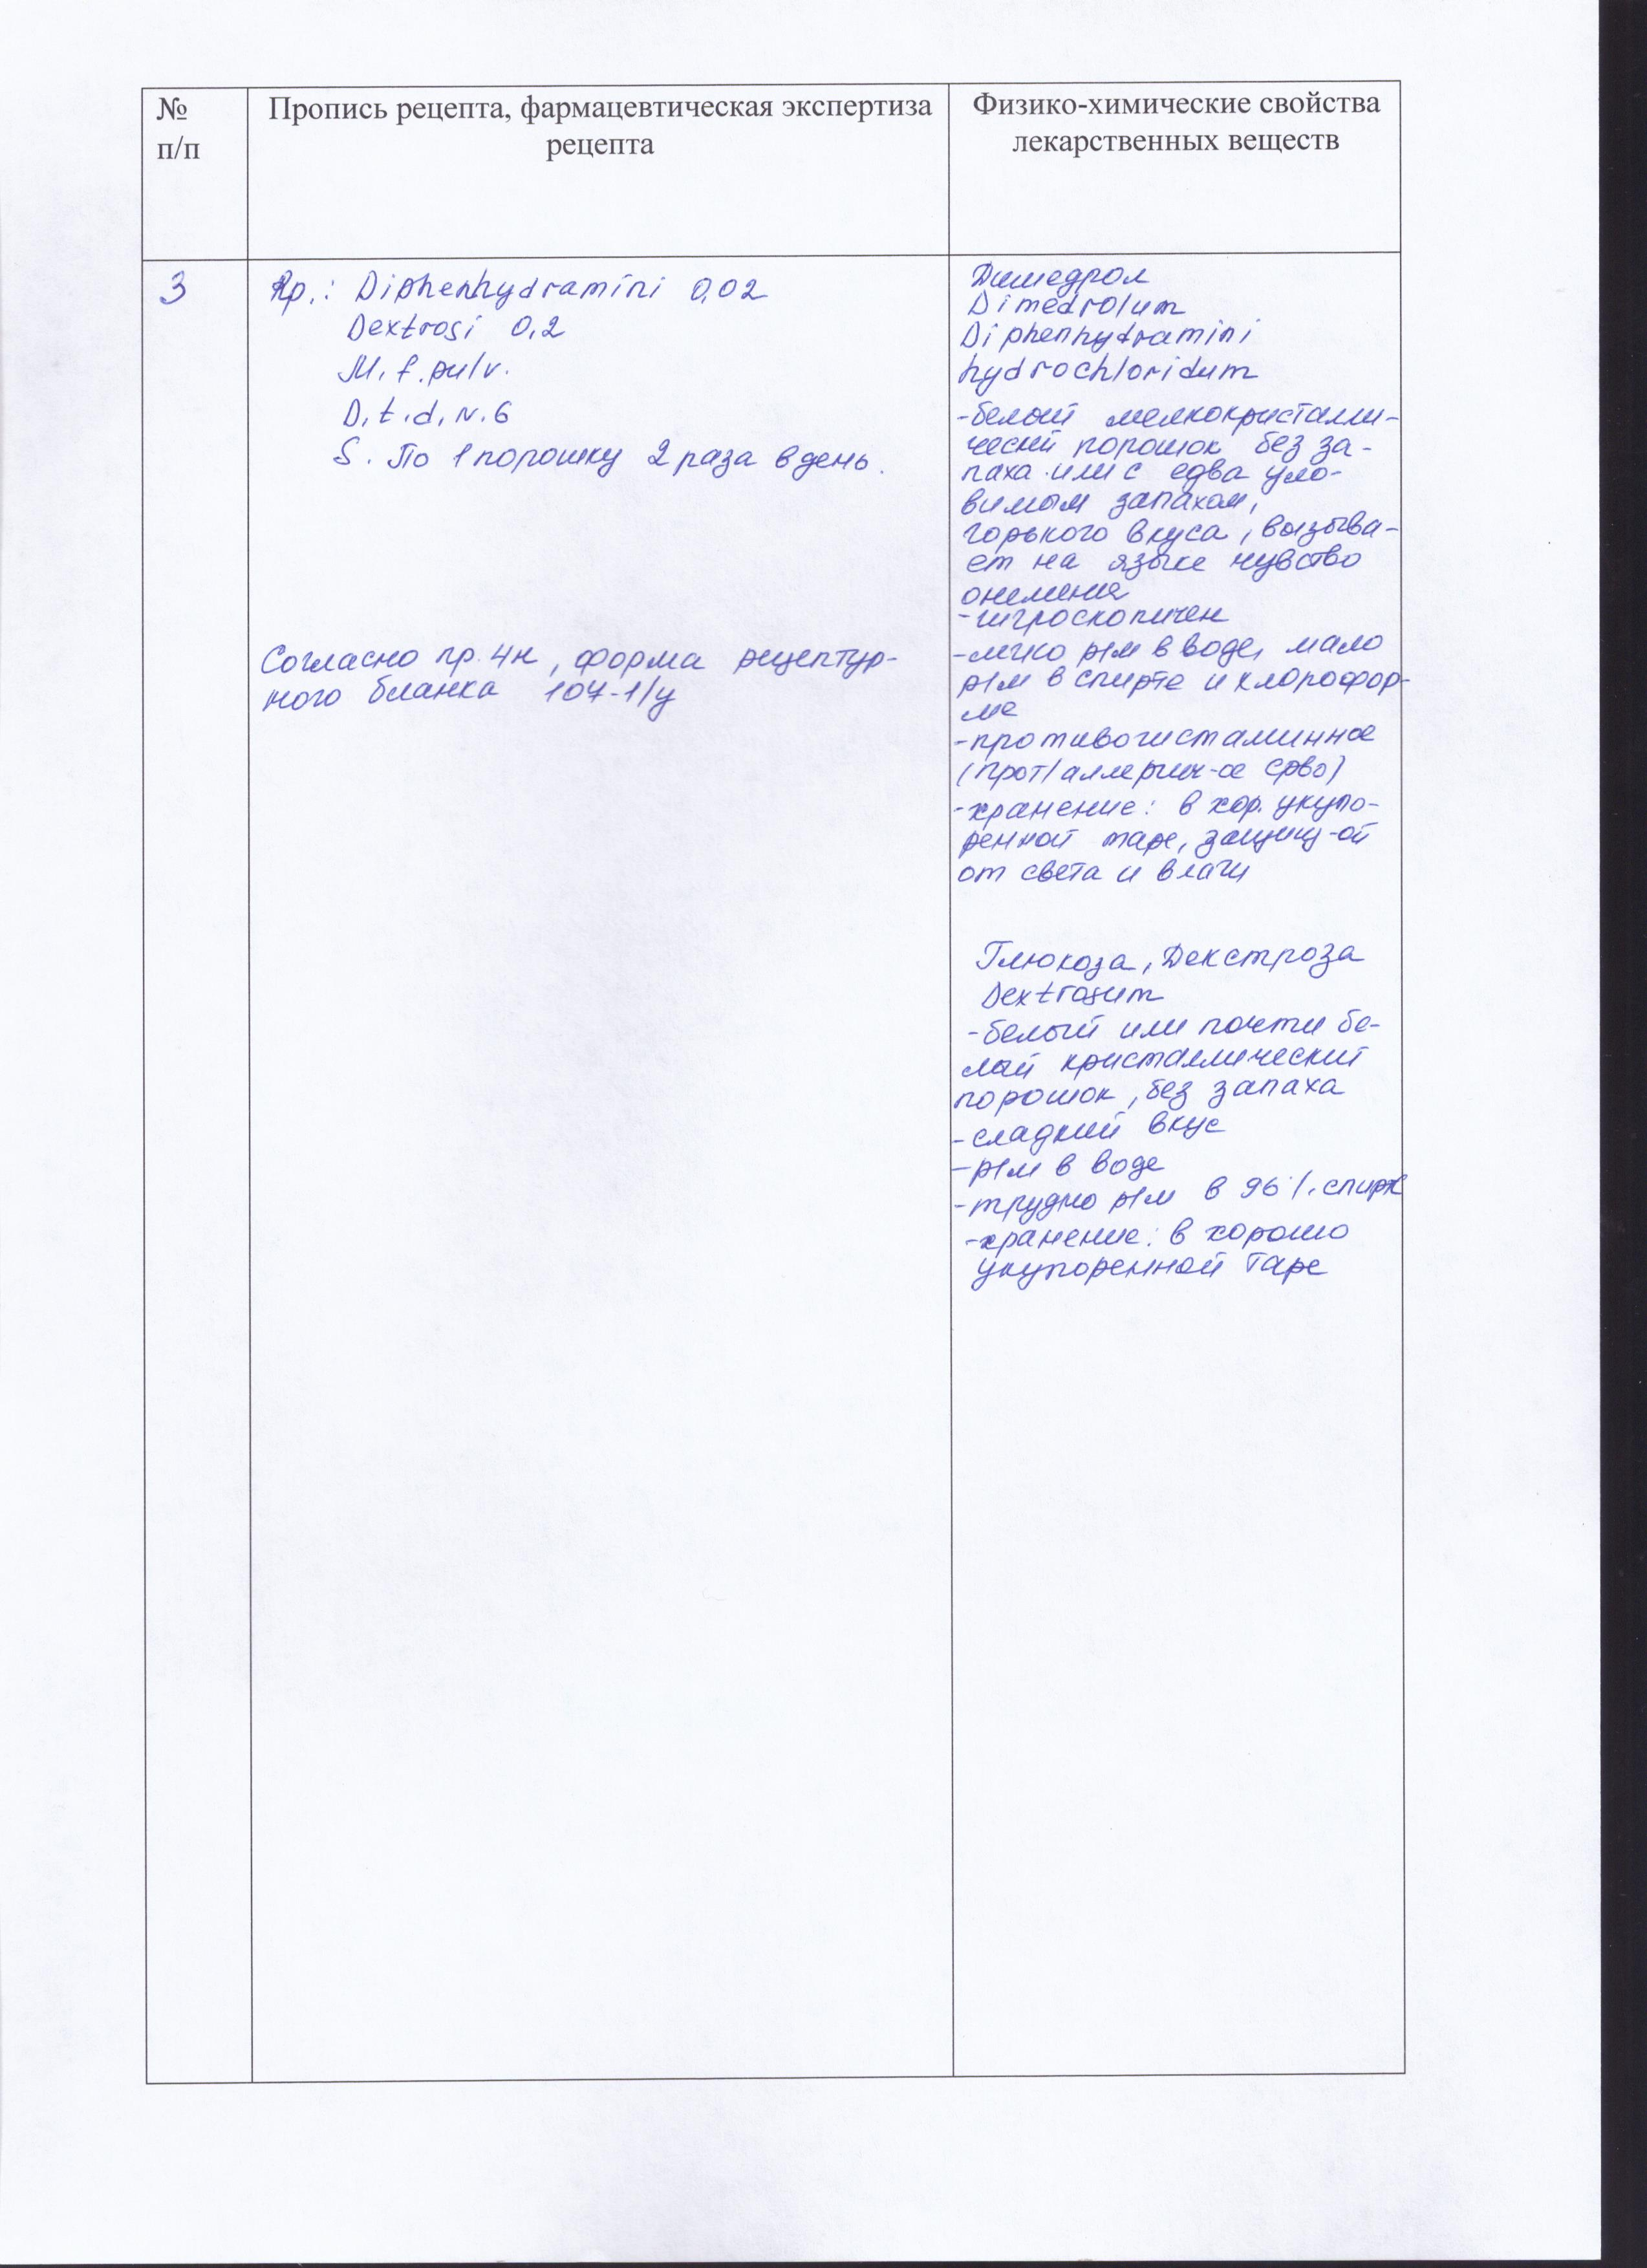 №
п/п
Пропись рецепта, фармацевтическая экспертиза
рецепта
Физико-химические свойства
лекарственных веществ
3
Rp.: Diphenhydramini 0,02
Dextrosi 0,2
M. f. pulv.
D. t. d. N. 6
S. По 1 порошку 2 раза в день.
Согласно пр. 4н, форма рецептур-
ного бланка 107-1/у
Димедрол
Dimedrolum
Diphenhydramini
hydrochloridum
-белый мелкокристалли-
ческий порошок без за-
паха или с едва уло-
вимым запахом,
горького вкуса, вызыва-
ет на языке чувство
онемения
-гигроскопичен
-легко р/м в воде, мало
р/м в спирте и хлорофор-
ме
-противогистаминное
(прот/аллергич-ое ср-во)
-хранение: в хор. укупо-
ренной таре, защищ-ой
от света и влаги
Глюкоза, Декстроза
Dextrosum
-белый или почти бе-
лый кристаллический
порошок, без запаха
-сладкий вкус
-р/м в воде
-трудно р/м в 96%. спирте
-хранение: в хорошо
укупоренной таре